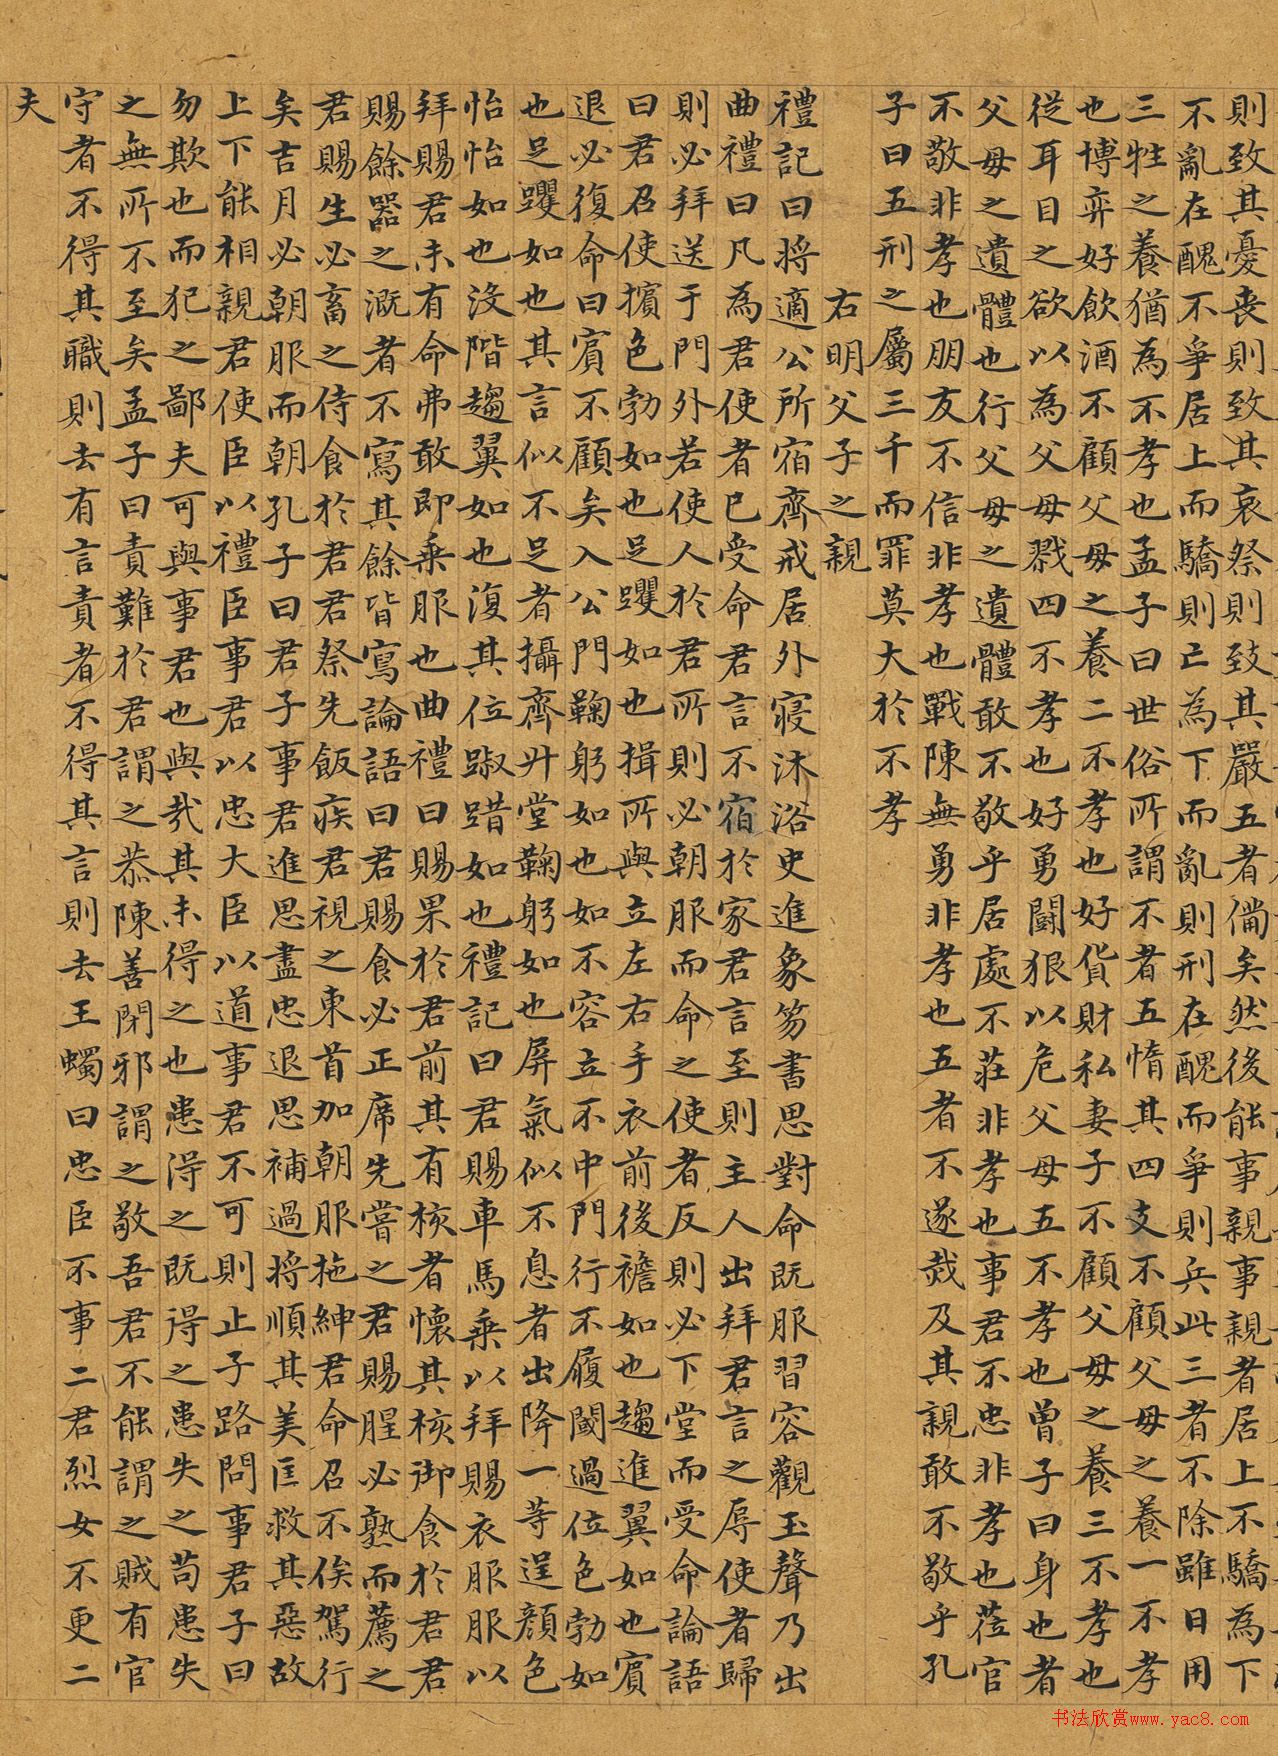 則致其憂丧則致其哀祭則致其嚴五者備矣然後能事親事親者居上不驕為下
不亂在醜不爭居上而驕則亡為下而亂則刑在醜而爭則兵此三者不除雖日用
三牲之養猶為不孝也孟子曰世俗所謂不孝者五惰其四支不顧父母之養一不孝
也博弈好飲酒不顧父母之養二不孝也好貨財私妻子不顧父母之養三不孝也
從耳目之欲以為父母戮四不孝也好勇鬪狠以危父母五不孝也曾子曰身也者
父母之遺體也行父母之遺體敢不敬乎居處不莊非孝也事君不忠非孝也莅官
不敬非孝也朋友不信非孝也戰陳無勇非孝也五者不遂烖及其親敢不敬乎孔
子曰五刑之屬三千而罪莫大於不孝
右明父子之親
禮記曰将適公所宿齊戒居外寢沐浴史進象笏書思對命既服習容觀玉聲乃出
曲禮曰凡為君使者已受命君言不宿於家君言至則主人出拜君言之辱使者歸
則必拜送于門外若使人於君所則必朝服而命之使者反則必下堂而受命論語
曰君召使擯色勃如也足躩如也揖所與立左右手衣前後襜如也趨進翼如也賓
退必復命曰賓不顧矣入公門鞠躬如也如不容立不中門行不履閾過位色勃如
也足躩如也其言似不足者攝齊升堂鞠躬如也屏氣似不息者出降一等逞顔色
怡怡如也沒階趨翼如也復其位踧踖如也禮記曰君賜車馬乗以拜賜衣服服以
拜賜君未有命弗敢即乗服也曲禮曰賜果於君前其有核者懷其核御食於君君
賜餘器之溉者不寫其餘皆寫論語曰君賜食必正席先嘗之君賜腥必熟而薦之
君賜生必畜之侍食於君君祭先飯疾君視之東首加朝服拖紳君命召不俟駕行
矣吉月必朝服而朝孔子曰君子事君進思盡忠退思補過将順其美匡救其惡故
上下能相親君使臣以禮臣事君以忠大臣以道事君不可則止子路問事君子曰
勿欺也而犯之鄙夫可與事君也與㢤其未得之也患得之既得之患失之苟患失
之無所不至矣孟子曰責難於君謂之恭陳善閉邪謂之敬吾君不能謂之賊有官
守者不得其職則去有言責者不得其言則去王蠋曰忠臣不事二君烈女不更二
夫
书法欣赏www.yac8.com